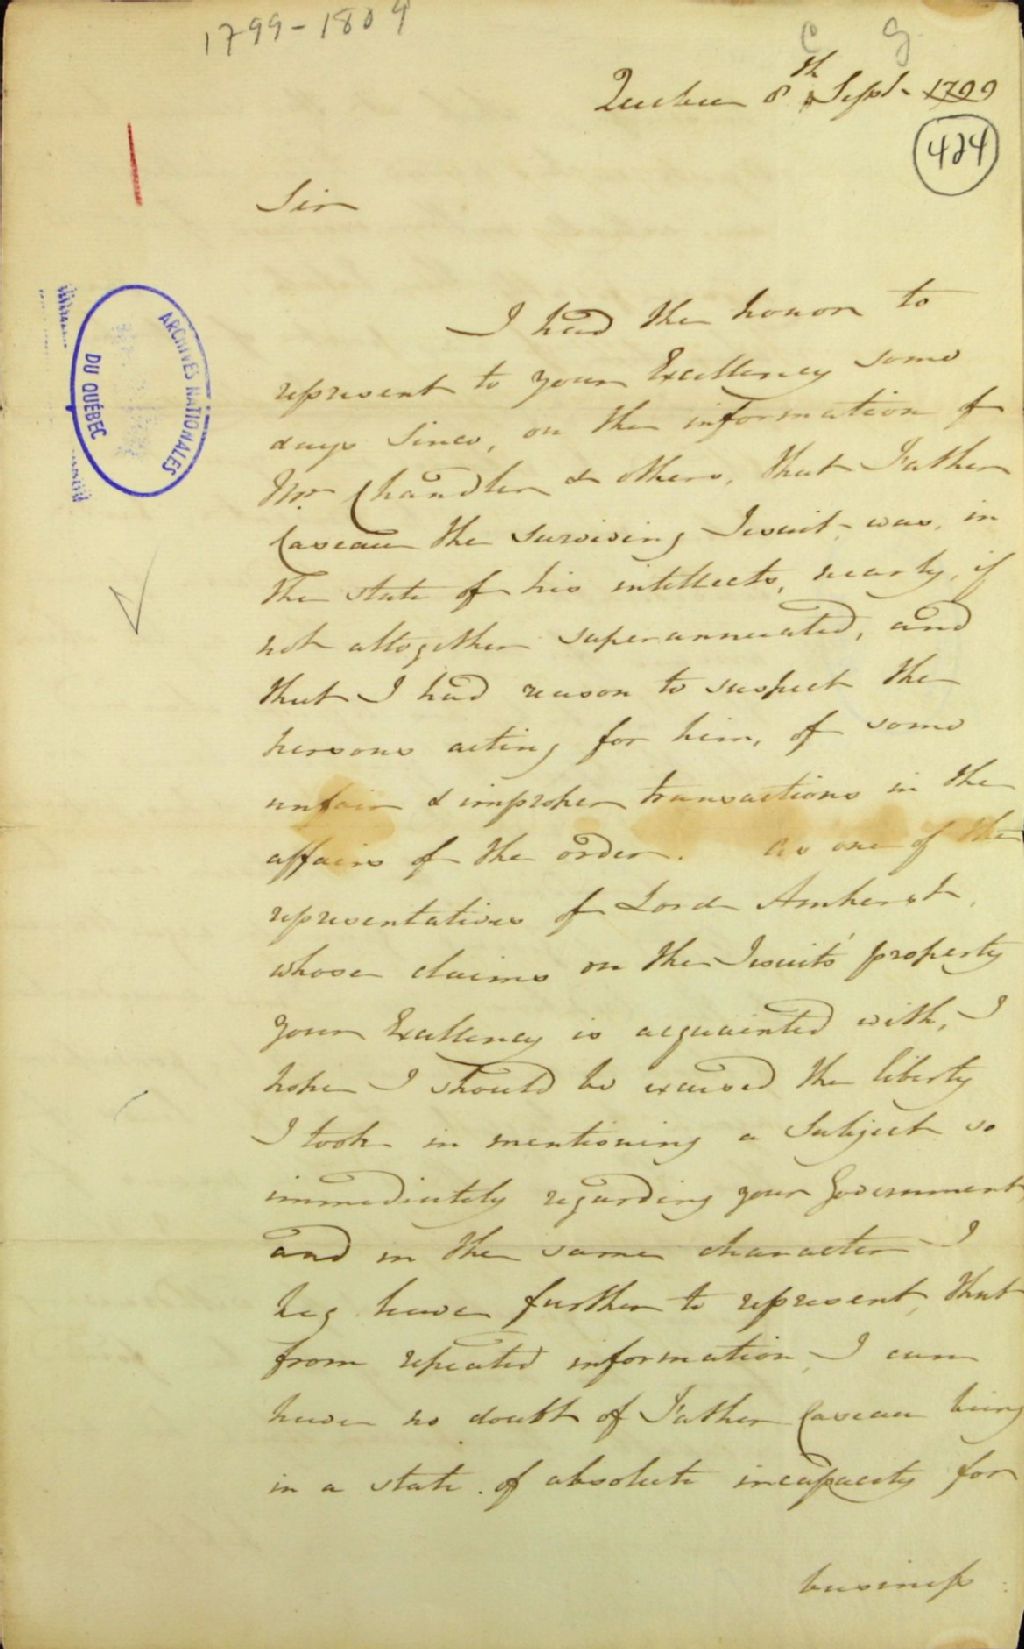 1799-1809
C G
Quebec 8th Sept. 1799
424
Sir
ARCHIVES NATIONALES
DU QUÉBEC
I had the honor to
represent to your Excellency some
days since, on the information of
Mr. Chandler & others, that Father
Caseau the surviving Jesuit was, in
the state of his intellects, nearly, if
not altogether superannuated, and
that I had reason to suspect the
persons acting for him, of some
unfair & improper transactions in the
affairs of the order. As one of the
representatives of Lord Amherst,
whose claims on the Jesuits' property
your Excellency is acquainted with, I
hope I should be excused the liberty
I took in mentioning a Subject so
immediately regarding your Government
and in the same character I
beg leave further to represent, that
from repeated information, I can
have no doubt of Father Caseau being
in a state of absolute incapacity for
business